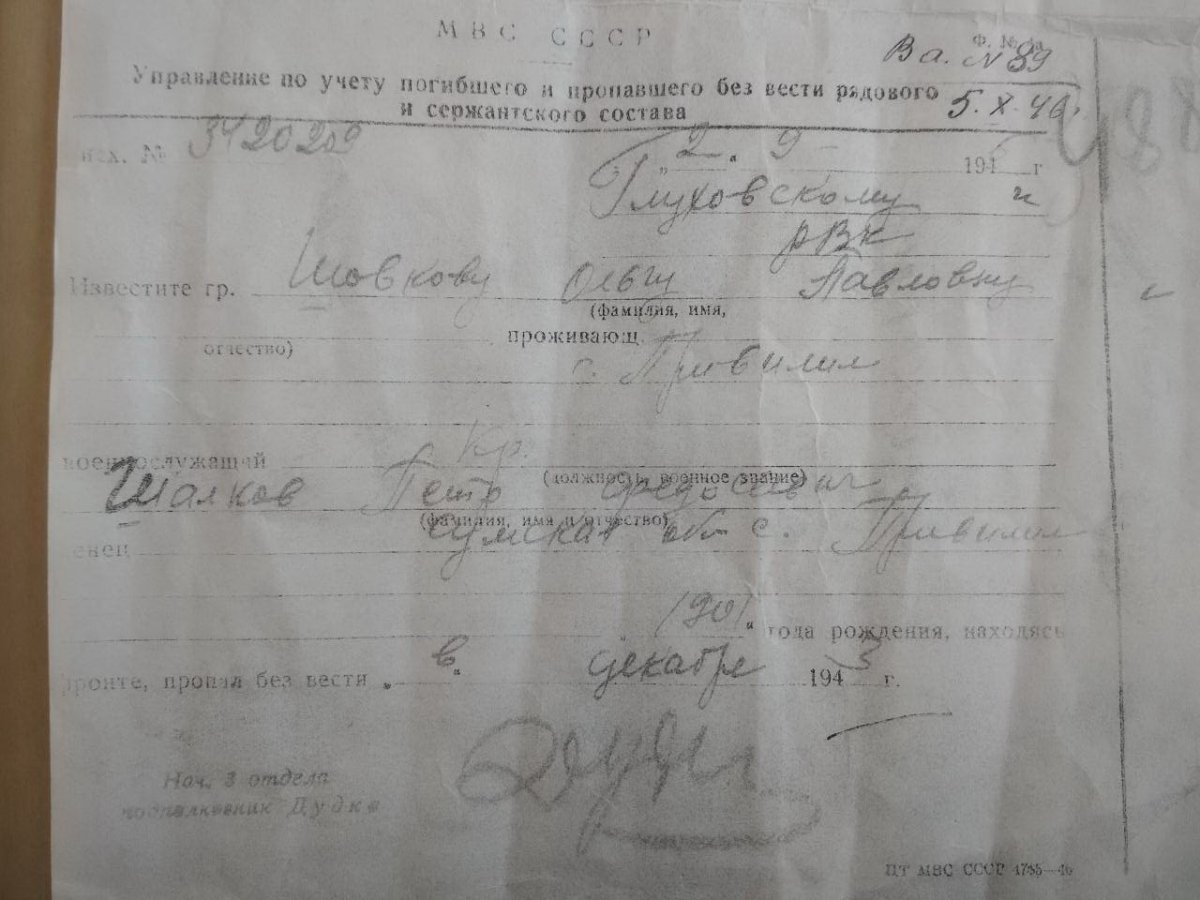 МВС СССР
Ф. №
Вх. № 89
Управление по учету погибшего и пропавшего без вести рядового
и сержантского состава
5.X.46г.
исх. № 3420209 „2„ 9 194 г
Глуховскому
РВК
Известите гр. Шовкову Ольгу Павловну
(фамилия, имя,
отчество) проживающ.
с.
военнослужащий Кр.
(должность, военное звание)
Петр Федосович
(фамилия, имя и отчество)
енец Сумская обл с.
1901 „ года рождения, находясь
фронте, пропал без вести „в„ декабре 1943 г.
Нач. 3 отдела
подполковник Дудко
ЦТ МВС СССР 1785—46